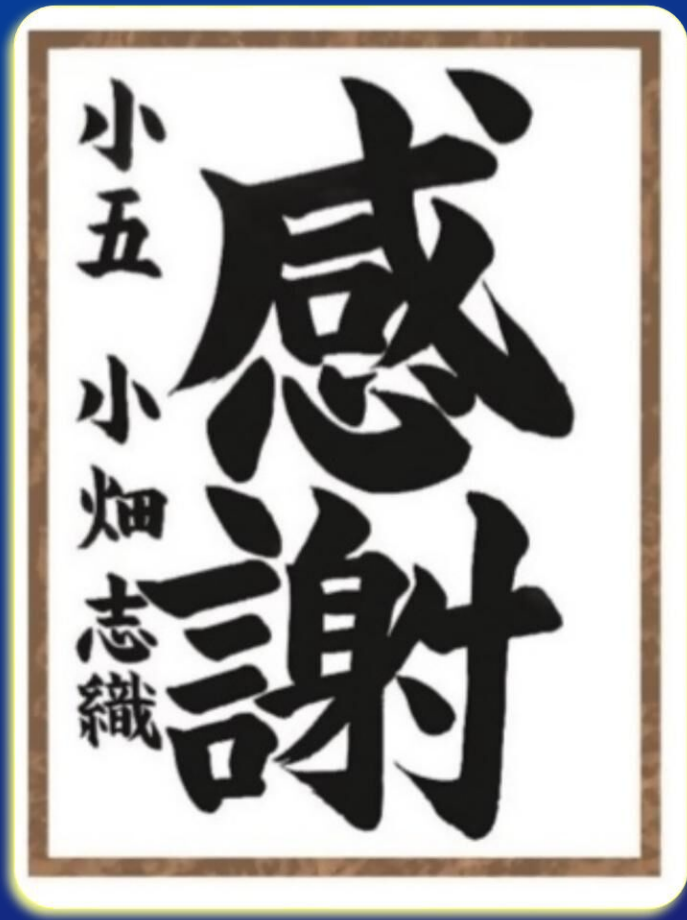 感謝
小五 小畑志織